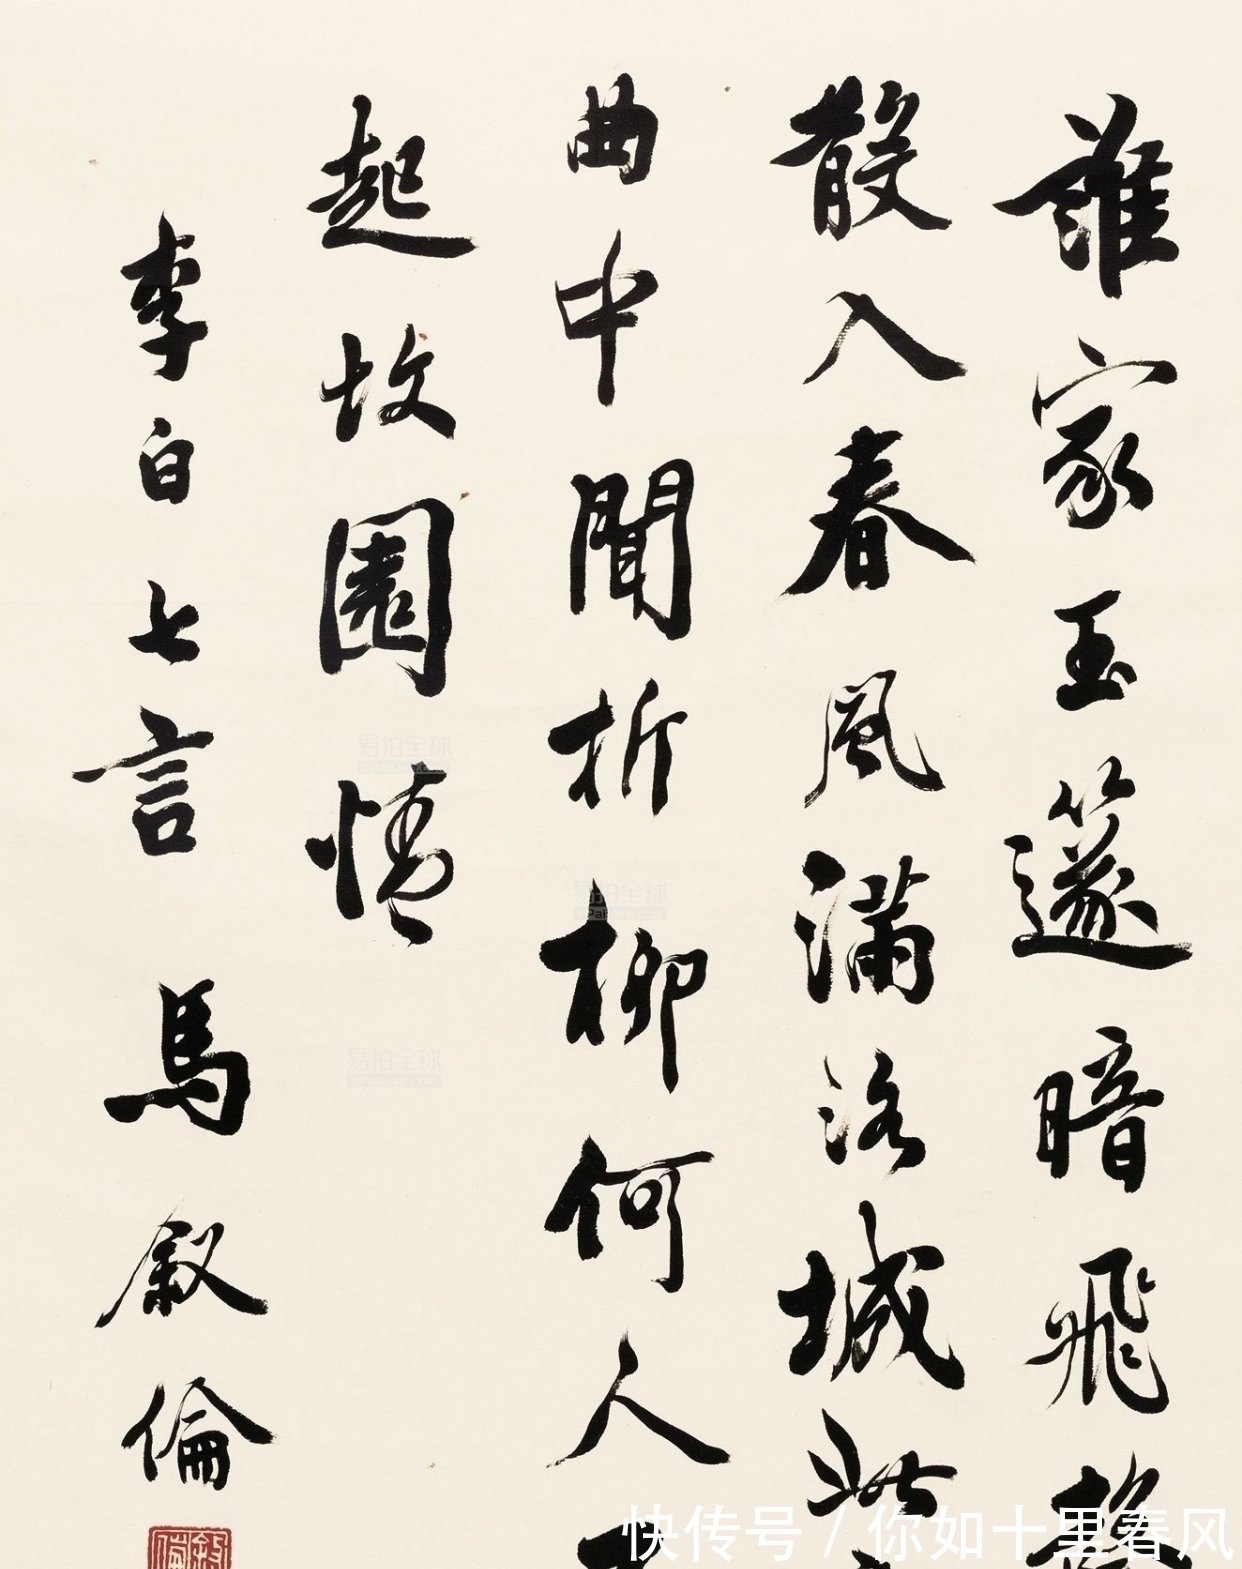 誰家玉篴暗飛聲
散入春風滿洛城此
曲中聞折柳何人不
起故園情
李白七言 馬叙倫
易拍全球
易拍全球
易拍全球
快传号 / 你如十里春风